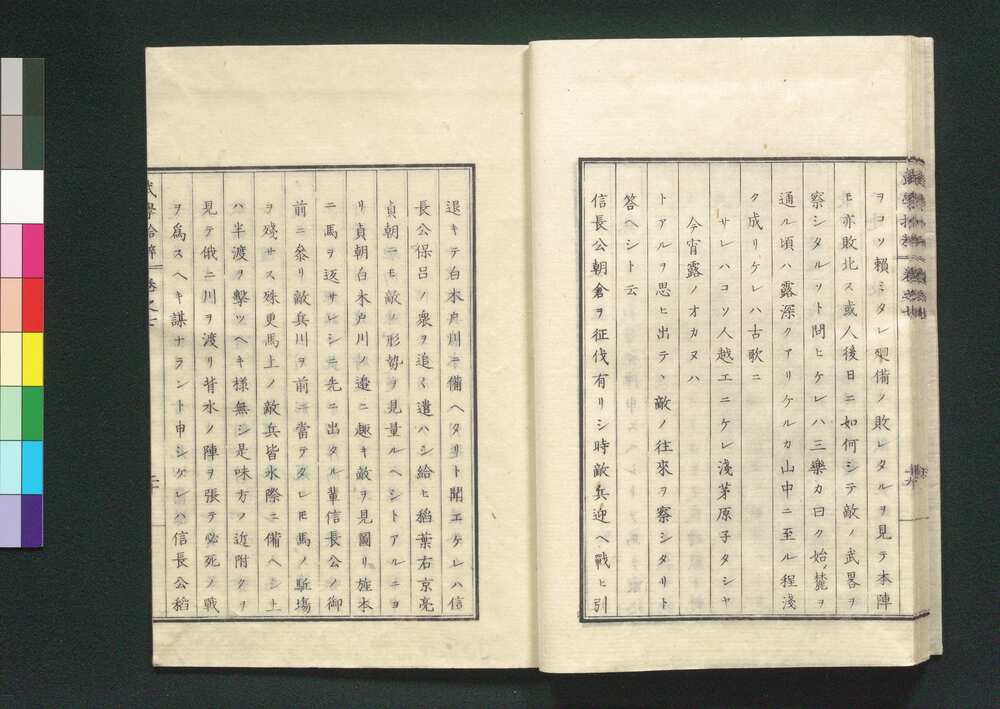 ヲコソ頼ミタレ兜備ノ敗レタルヲ見テ本陣
モ亦敗北ス或人後日ニ如何シテ敵ノ武畧ヲ
察シタルソト問ヒケレハ三樂カ曰ク始麓ヲ
通ル頃ハ露深クアリケルカ山中ニ至ル程淺
ク成リケレハ古歌ニ
サレハコソ人越エニケレ淺茅原子タシヤ
今宵露ノオカヌハ
トアルヲ思ヒ出テ、敵ノ往來ヲ察シタリト
答ヘシト云
信長公朝倉ヲ征伐有リシ時敵兵迎ヘ戰ヒ引
退キテ白木戸川ニ備ヘタリト聞エケレハ信
長公保呂ノ衆ヲ追々遣ハシ給ヒ稻葉右京亮
貞朝ニモ敵ノ形勢ヲ見量ルヘシトアルニヨ
リ貞朝白木戸川ノ邉ニ趣キ敵ヲ見圖リ旌本
ニ馬ヲ返サレシニ先ニ出タル輩信長公ノ御
前ニ參リ敵兵川ヲ前ニ當テタレモ馬ノ駈塲
ヲ殘サス殊更馬上ノ敵兵皆水際ニ備ヘシ上
ハ半渡ヲ擊ツヘキ様無シ是味方ノ近附クヲ
見テ俄ニ川ヲ渡リ背水ノ陣ヲ張テ必死ノ戰
ヲ爲スヘキ謀ナラント申シケレハ信長公稻
武學拾粹 卷之七
二十